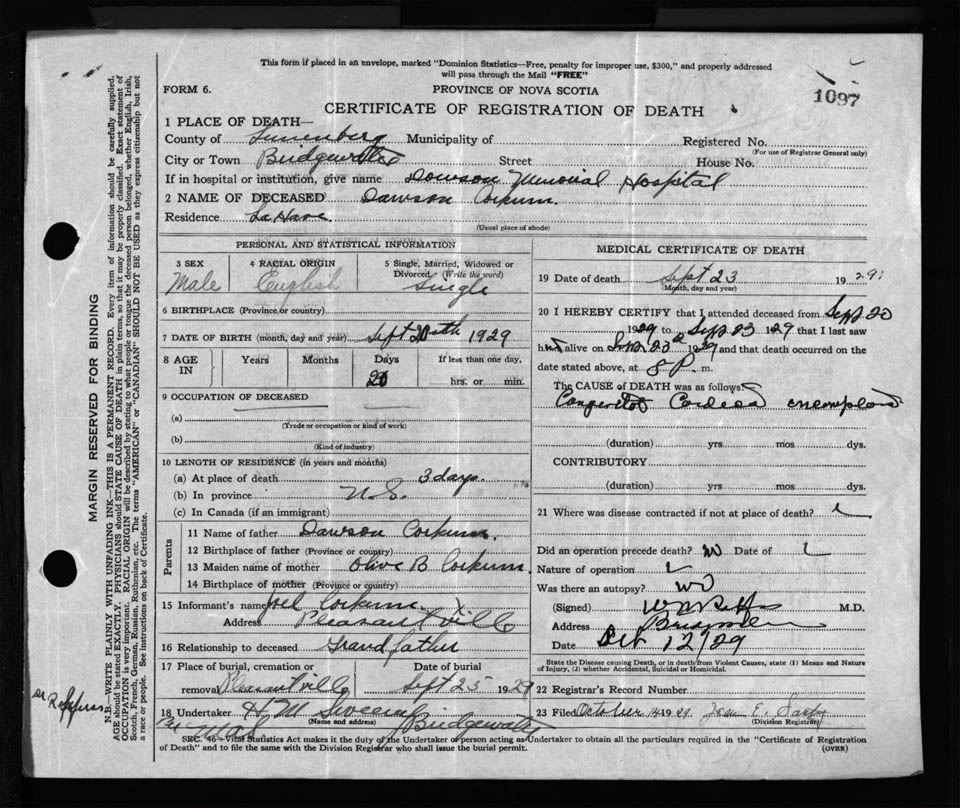 This form if placed in an envelope, marked "Dominion Statistics—Free, penalty for improper use, $300," and properly addressed
will pass through the Mail "FREE"
FORM 6.
PROVINCE OF NOVA SCOTIA
1097
CERTIFICATE OF REGISTRATION OF DEATH
1 PLACE OF DEATH—
County of Lunenburg Municipality of Registered No.
(For use of Registrar General only)
City or Town Bridgewater Street House No.
If in hospital or institution, give name Dawson Memorial Hospital
2 NAME OF DECEASED Dawson Corkum.
Residence LaHave
(Usual place of abode)
PERSONAL AND STATISTICAL INFORMATION
3 SEX
Male
4 RACIAL ORIGIN
English
5 Single, Married, Widowed or
Divorced (Write the word)
Single
6 BIRTHPLACE (Province or country)
7 DATE OF BIRTH (month, day and year) Sept 20th 1929
8 AGE
IN
Years Months Days If less than one day,
hrs. or min.
9 OCCUPATION OF DECEASED
(a)
(Trade or occupation or kind of work)
(b)
(Kind of industry)
10 LENGTH OF RESIDENCE (in years and months)
(a) At place of death 3 days.
(b) In province N.S.
(c) In Canada (if an immigrant)
Parents
11 Name of father Dawson Corkum.
12 Birthplace of father (Province or country)
13 Maiden name of mother Olive B. Corkum.
14 Birthplace of mother (Province or country)
15 Informant's name Joel Corkum
Address Pleasantville
16 Relationship to deceased Grandfather
17 Place of burial, cremation or Date of burial
removal Pleasantville Sept 25 1929
18 Undertaker H M Bridgewater
(Name and address)
MEDICAL CERTIFICATE OF DEATH
19 Date of death Sept 23 1929
(Month, day and year)
20 I HEREBY CERTIFY that I attended deceased from Sept 20
1929 to Sept 23 1929 that I last saw
him alive on Sept 23 1929 and that death occurred on the
date stated above, at 8 P. m.
The CAUSE of DEATH was as follows:
(duration) yrs. mos. dys.
CONTRIBUTORY
(duration) yrs. mos. dys.
21 Where was disease contracted if not at place of death?
Did an operation precede death? no Date of
Nature of operation
Was there an autopsy? no
(Signed) M.D.
Address
Date Oct 12/29
State the Disease causing Death, or in death from Violent Causes, state (1) Means and Nature
of Injury, (2) whether Accidental, Suicidal or Homicidal.
22 Registrar's Record Number
23 Filed October 1929
(Division Registrar)
SEC. 46—Vital Statistics Act makes it the duty of the Undertaker or person acting as Undertaker to obtain all the particulars required in the "Certificate of Registration
of Death" and to file the same with the Division Registrar who shall issue the burial permit.
(OVER)
MARGIN RESERVED FOR BINDING
N.B.—WRITE PLAINLY WITH UNFADING INK—THIS IS A PERMANENT RECORD. Every item of information should be carefully supplied.
AGE should be stated EXACTLY. PHYSICIANS should STATE CAUSE OF DEATH in plain terms, so that it may be properly classified. Exact statement of
OCCUPATION is very important. RACIAL ORIGIN will be described by stating to what people or tongue the deceased person belonged, whether English, Irish,
Scotch, French, German, Russian, Ruthenian, etc. The terms "AMERICAN" or "CANADIAN" SHOULD NOT BE USED as they express citizenship but not
a race or people. See instructions on back of Certificate.